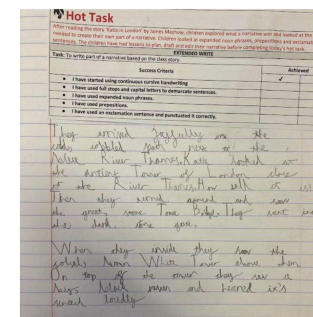 Hot Task
After reading the story 'Katie in London' by James Mayhew, children explored what a narrative was and looked at the
needed to create their own part of a narrative. Children looked at expanded noun phrases, prepositions and exclamat
sentences. The children have had lessons to plan, draft and edit their narrative before completing today's hot task.
EXTENDED WRITE
Task: To write part of a narrative based on the class story.
Success Criteria Achieved
I have started using continuous cursive handwriting ✓
I have used full stops and capital letters to demarcate sentences.
I have used expanded noun phrases.
I have used prepositions.
I have used an exclamation sentence and punctuated it correctly.
They arrived joyfully on the
cobbled next to the
River Thames. Katie looked at
the Tower of London close
at the River Thames. How it is!
Then they turned around and saw
the great, Bridge. They went
the dark, stone
When they inside they saw the
White Tower above them
On top of the tower they saw a
raven and heared it's
loudly